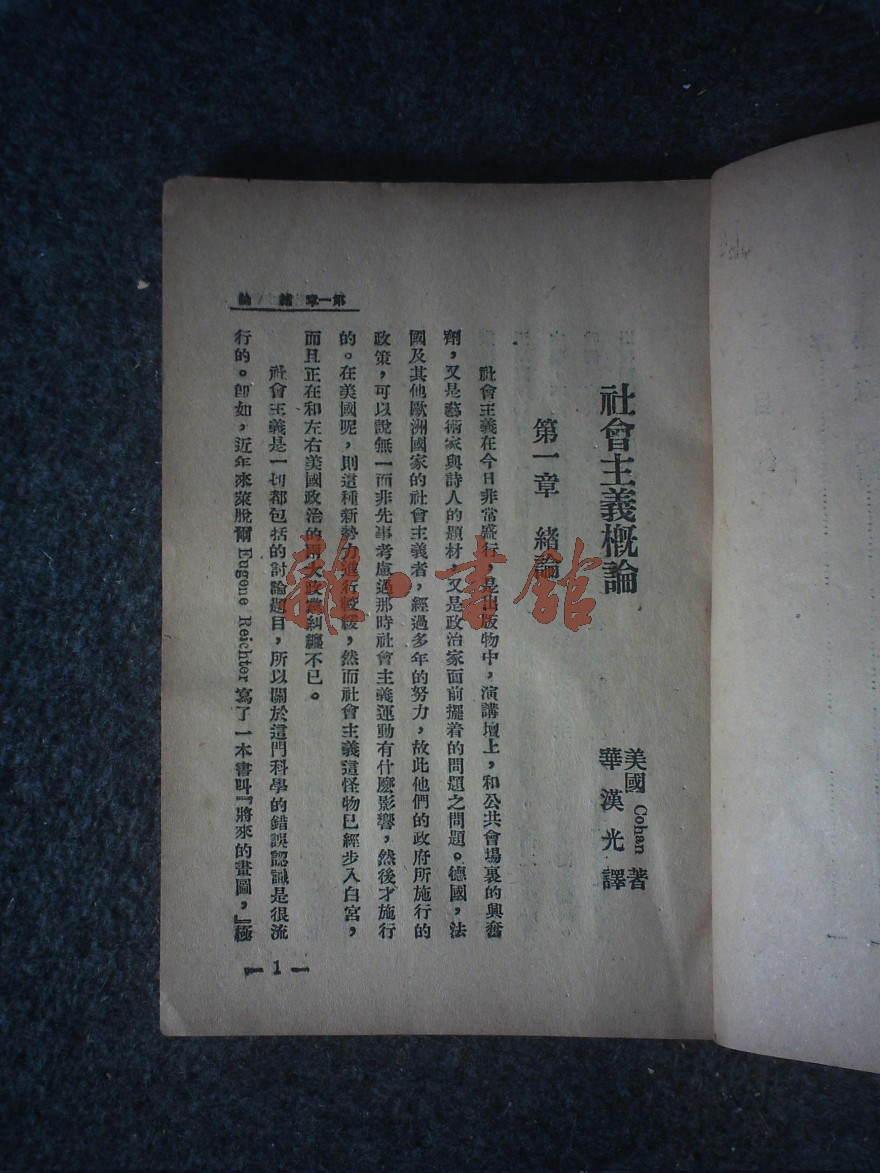 社會主義概論
美國 Cohan 著
華漢光譯
第一章 緒論
社會主義在今日非常盛行,是出版物中,演講壇上,和公共會場裏的興奮
劑,又是藝術家與詩人的題材,又是政治家面前擺着的問題之問題。德國,法
國及其他歐洲國家的社會主義者,經過多年的努力,故此他們的政府所施行的
政策,可以說無一而非先事考慮過那時社會主義運動有什麼影響,然後才施行
的。在美國呢,則這種新勢力進行較緩,然而社會主義這怪物已經步入白宮,
而且正在和左右美國政治的兩大政黨糾纏不已。
社會主義是一切都包括的討論題目,所以關於這門科學的錯誤認識是很流
行的。卽如,近年來萊脫爾 Eugene Reichter 寫了一本書叫『將來的畫圖,』極
第一章 緒論
— 1 —
雜·書館